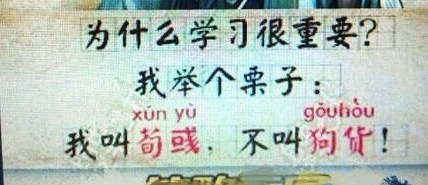 为什么学习很重要?
我举个栗子:
xún yù gǒuhòu
我叫荀彧.不叫狗货!